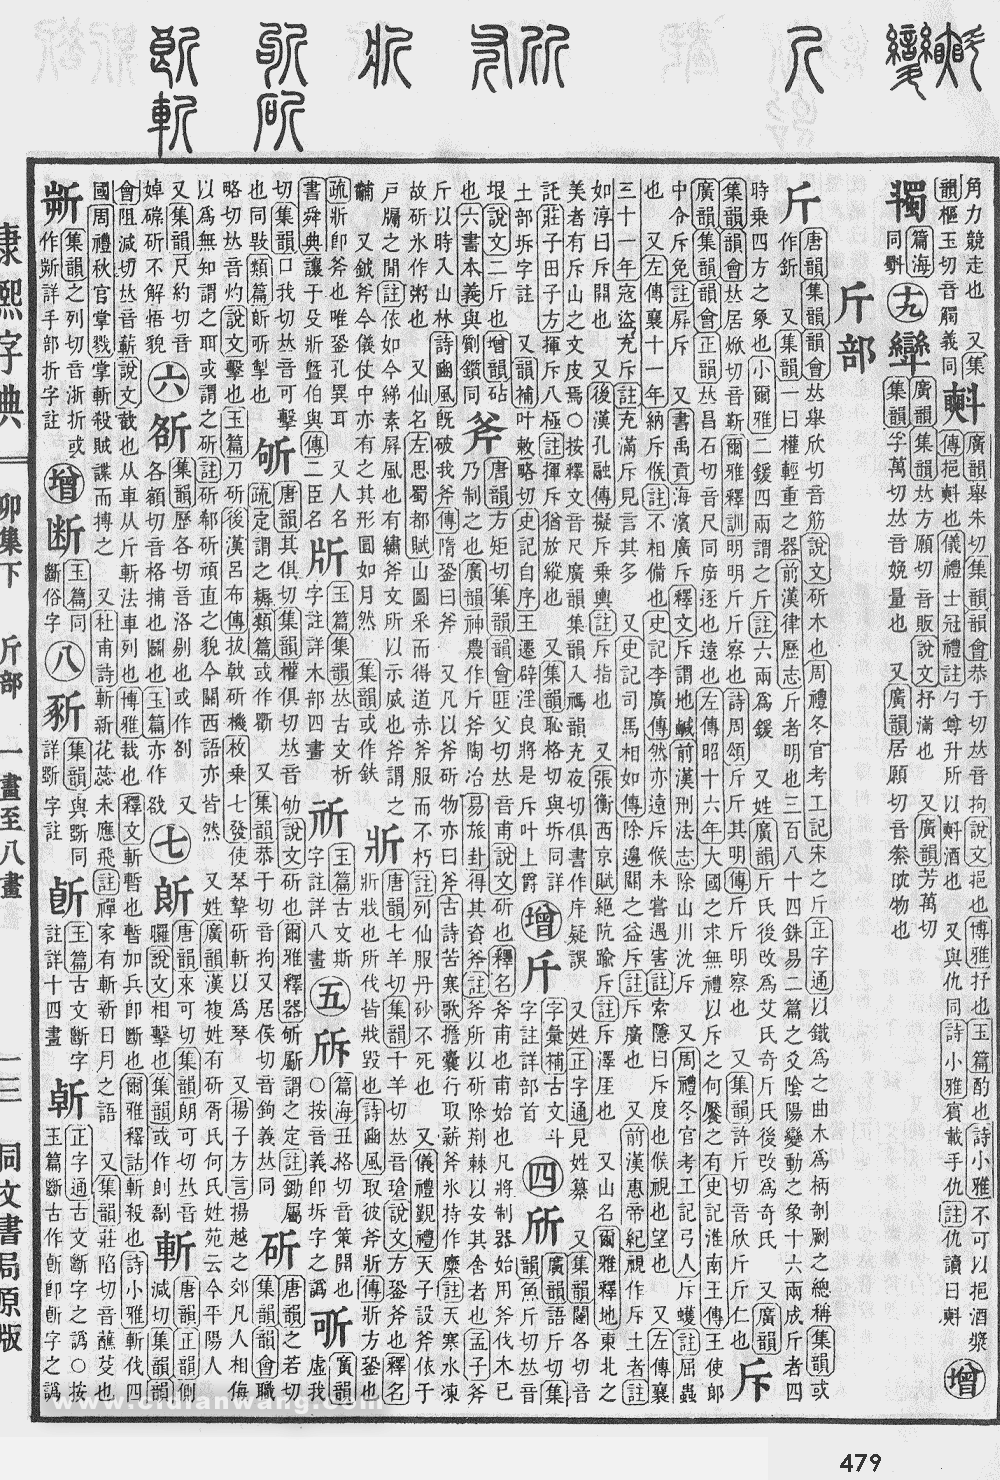 角力競走也 又集
韻樞玉切音斸義同
斢 廣韻舉朱切集韻韻會恭于切𠀤音拘說文挹也博雅抒也玉篇酌也詩小雅不可以挹酒漿
傳挹斢也儀禮士冠禮註勺尊升所以斢酒也 又與仇同詩小雅賓載手仇註仇讀曰斢
增
篇海
同㪵
十九
廣韻集韻𠀤方願切音販說文抒滿也 又廣韻芳萬切
集韻孚萬切𠀤音娩量也 又廣韻居願切音䊎㪺物也
斤部
斤 唐韻集韻韻會𠀤舉欣切音筋說文斫木也周禮冬官考工記宋之斤正字通以鐵爲之曲木爲柄剞劂之總稱集韻或
作釿 又集韻一曰權輕重之器前漢律歷志斤者明也三百八十四銖易二篇之爻陰陽變動之象十六兩成斤者四
時乗四方之象也小爾雅二鍰四兩謂之斤註六兩爲鍰 又姓廣韻斤氏後改爲艾氏奇斤氏後改爲奇氏 又廣韻
集韻韻會𠀤居焮切音靳爾雅釋訓明明斤斤察也詩周頌斤斤其明傳斤斤明察也 又集韻許斤切音欣斤斤仁也
斥
廣韻集韻韻會正韻𠀤昌石切音尺同㡿逐也遠也左傳昭十六年大國之求無禮以斥之何饜之有史記淮南王傳王使郎
中令斥免註屛斥 又書禹貢海濱廣斥釋文斥謂地鹹前漢刑法志除山川沈斥 又周禮冬官考工記弓人斥蠖註屈蟲
也 又左傳襄十一年納斥候註不相備也史記李廣傳然亦遠斥候未嘗遇害註索隱曰斥度也候視也望也 又左傳襄
三十一年寇盜充斥註充滿斥見言其多 又史記司馬相如傳除邊關之益斥註斥廣也 又前漢惠帝紀視作斥土者註
如淳曰斥開也 又後漢孔融傳擬斥乗輿註斥指也 又張衡西京賦絕阬踰斥註斥澤厓也 又山名爾雅釋地東北之
美者有斥山之文皮焉○按釋文音尺廣韻集韻入禡韻充夜切俱書作庌疑誤 又姓正字通見姓纂 又集韻闥各切音
託莊子田子方揮斥八極註揮斥猶放縱也 又集韻恥格切與坼同詳
土部坼字註 又韻補叶敕略切史記自序王遷辟淫良將是斥叶上爵
增
字彙補古文斗
字註詳部首
四
廣韻語斤切集
韻魚斤切𠀤音
垠說文二斤也增韻砧
也六書本義與劉鑕同
斧 唐韻方矩切集韻韻會匪父切𠀤音甫說文斫也釋名斧甫也甫始也凡將制器始用斧伐木已
乃制之也廣韻神農作斤斧陶冶易旅卦得其資斧註斧所以斫除荆棘以安其舍者也孟子斧
斤以時入山林詩豳風旣破我斧傳隋銎曰斧 又凡以斧斫物亦曰斧古詩苦寒歌擔囊行取薪斧氷持作糜註天寒水凍
故斫氷作粥也 又仙名左思蜀都賦山圖采而得道赤斧服而不朽註列仙服丹砂不死也 又儀禮覲禮天子設斧依于
戸牖之閒註依如今綈素屛風也有繡斧文所以示威也斧謂之
黼 又鉞斧今儀仗中亦有之其形圓如月然 集韻或作鈇
斨 唐韻七羊切集韻千羊切𠀤音瑲說文方銎斧也釋名
斨戕也所伐皆戕毀也詩豳風取彼斧斨傳斨方銎也
疏斨卽斧也唯銎孔異耳 又人名
書舜典讓于殳斨曁伯與傳二臣名
㸞 玉篇集韻𠀤古文析
字註詳木部四畫
玉篇古文斯
字註詳八畫
五
篇海丑格切音策開也
○按音義卽坼字之譌
廣韻
虛我
切集韻口我切𠀤音可擊
也同敤類篇斫斪掣也
斪 唐韻其俱切集韻權俱切𠀤音劬說文斫也爾雅釋器斪斸謂之定註鋤屬
疏定謂之耨類篇或作斸 又集韻恭于切音拘又居侯切音鉤義𠀤同
斫 唐韻之若切
集韻韻會職
略切𠀤音灼說文擊也玉篇刀斫後漢呂布傳拔戟斫機枚乗七發使琴摯斫斬以爲琴 又揚子方言揚越之郊凡人相侮
以爲無知謂之耵或謂之斫註斫郗斫頑直之貌今關西語亦皆然 又姓廣韻漢複姓有斫胥氏何氏姓苑云今平陽人
又集韻尺約切音
婥磸斫不解悟貌
六
集韻歷各切音洛剔也或作㓢 又
各額切音格捕也鬭也玉篇亦作敋
七
唐韻來可切集韻朗可切𠀤音
㰁說文相擊也集韻或作㓥㔏
斬 唐韻正韻側
減切集韻韻
會阻減切𠀤音蔪說文截也从車从斤斬法車列也博雅裁也釋文斬暫也暫加兵卽斷也爾雅釋詁斬殺也詩小雅斬伐四
國周禮秋官掌戮掌斬殺賊諜而搏之 又杜甫詩斬新花蕊未應飛註禪家有斬新日月之語 又集韻莊陷切音蘸芟也
集韻之列切音浙折或
作斯詳手部折字註
增
断 玉篇同
斷俗字
八
集韻與斲同
詳斲字註
玉篇古文斷字
註詳十四畫
正字通古文斷字之譌○按
玉篇斷古作㫁卽㫁字之譌
康熙字典
卯集下 斤部 一畫至八畫
一三
同文書局原版
479
www.cidianwang.com